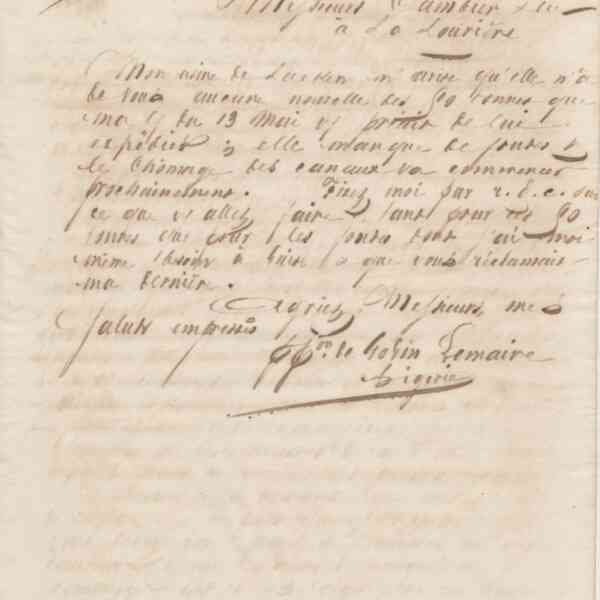 Messieurs Cambier
à La Louvière
Mon usine de m'avise qu'elle n'a
de vous aucune nouvelle des 50 tonnes que
ma du 19 Mai vs priait de lui
expédier ; elle manque de fontes &
le chômage des canaux va commencer
prochainement. Fixez moi par r. d. c. sur
ce que vs allez faire tant pour ces 50
tonnes que pour les fontes dont j'ai moi
même besoin à & que vous réclamait
ma dernière.
Agréez, Messieurs, mes
saluts empressés
de Gobin Lemaire